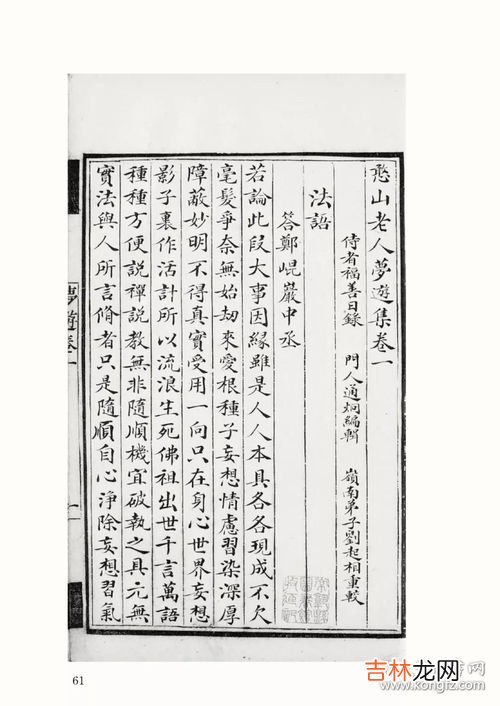 憨山老人夢遊集卷一
侍者福善日錄　門人通炯編輯　嶺南弟子劉起相重較
法語
答鄭崐巖中丞
若論此段大事因緣雖是人人本具各各現成不欠
毫髮爭奈無始劫來愛根種子妄想情慮習染深厚
障蔽妙明不得真實受用一向只在身心世界妄想
影子裏作活計所以流浪生死佛祖出世千言萬語
種種方便說禪說教無非隨順機宜破執之具元無
實法與人所言脩者只是隨順自心淨除妄想習氣
夢遊卷一
一
61
吉林龙网
www.kongfz.com